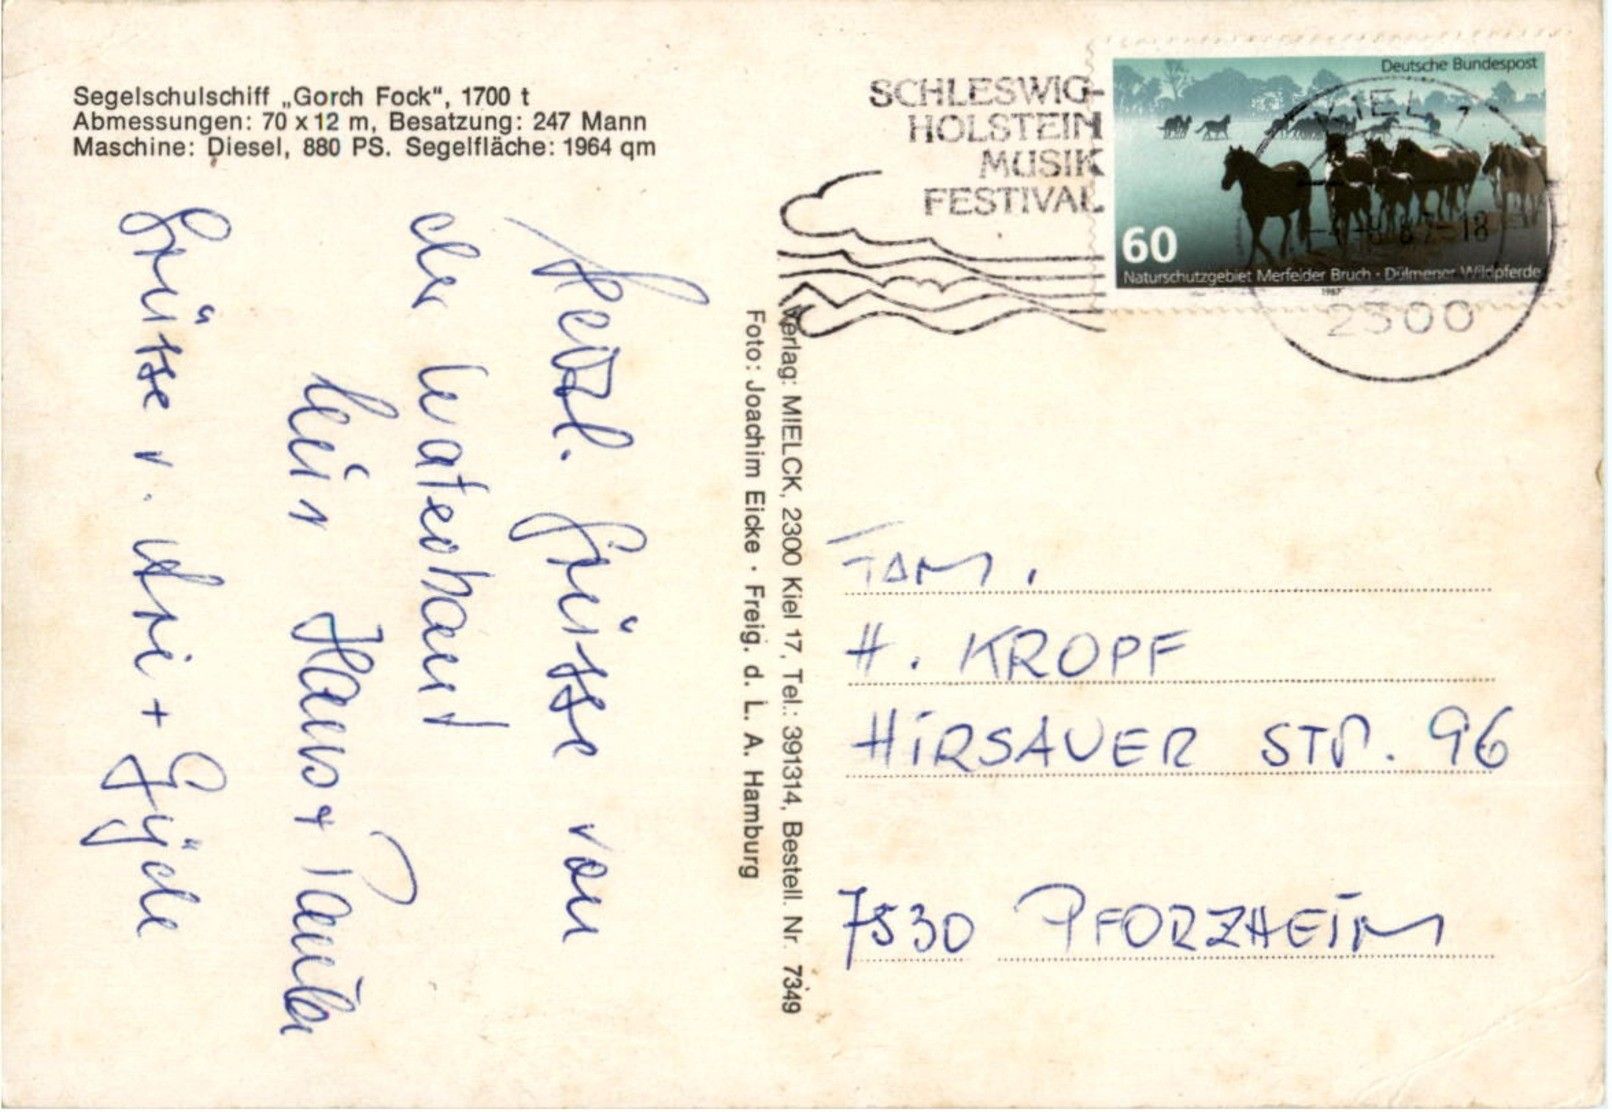 Segelschulschiff „Gorch Fock“, 1700 t
Abmessungen: 70 x 12 m, Besatzung: 247 Mann
Maschine: Diesel, 880 PS. Segelfläche: 1964 qm
Herzl. Grüsse von
der Waterkant
Hans + Paula
Grüsse v. Uwi + Gyde
Verlag: MIELCK, 2300 Kiel 17, Tel.: 391314, Bestell. Nr. 7349
Foto: Joachim Eicke · Freig. d. L. A. Hamburg
SCHLESWIG-
HOLSTEIN
MUSIK
FESTIVAL
Deutsche Bundespost
60
Naturschutzgebiet Merfelder Bruch · Dülmener Wildpferde
1987
KIEL 1
-18
2300
FAM.
H. KROPF
HIRSAUER STR. 96
7530 PFORZHEIM